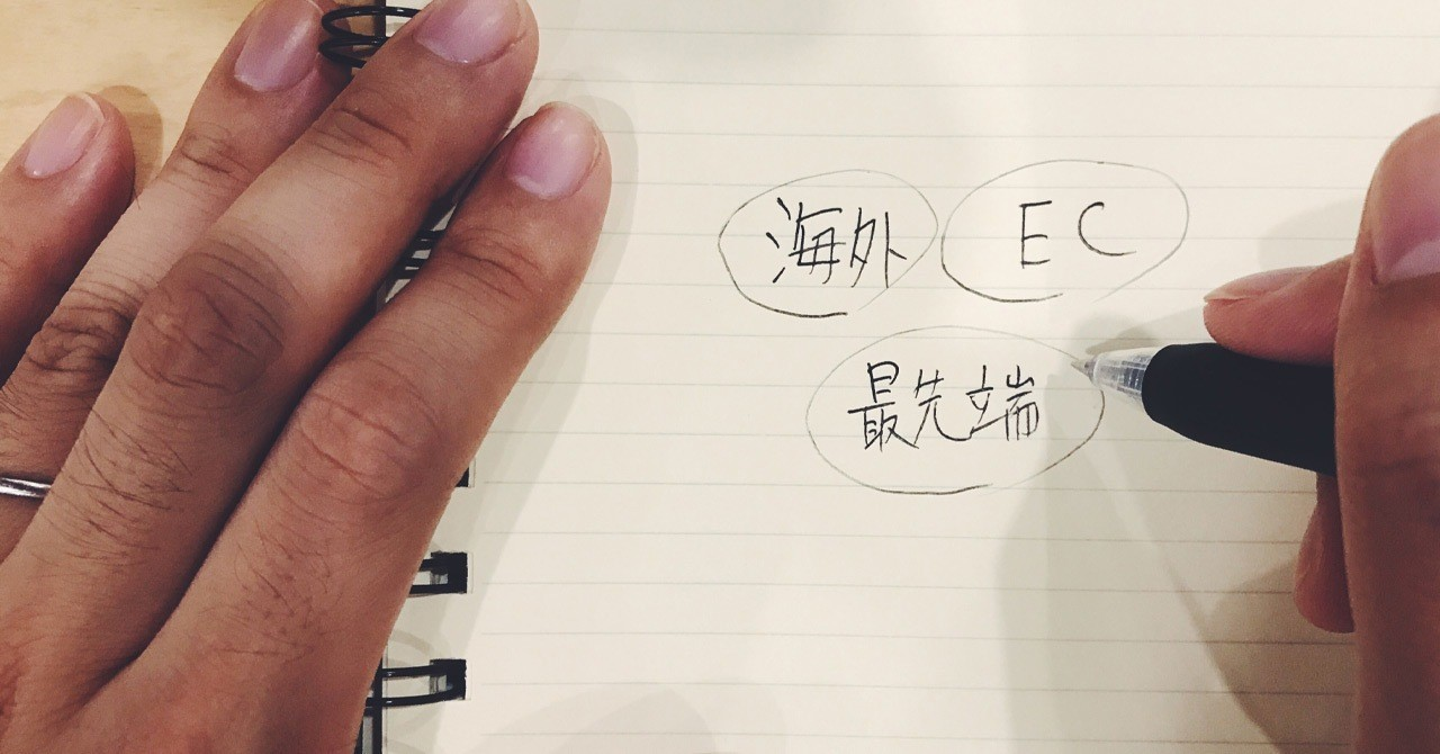 海外 EC
最先端